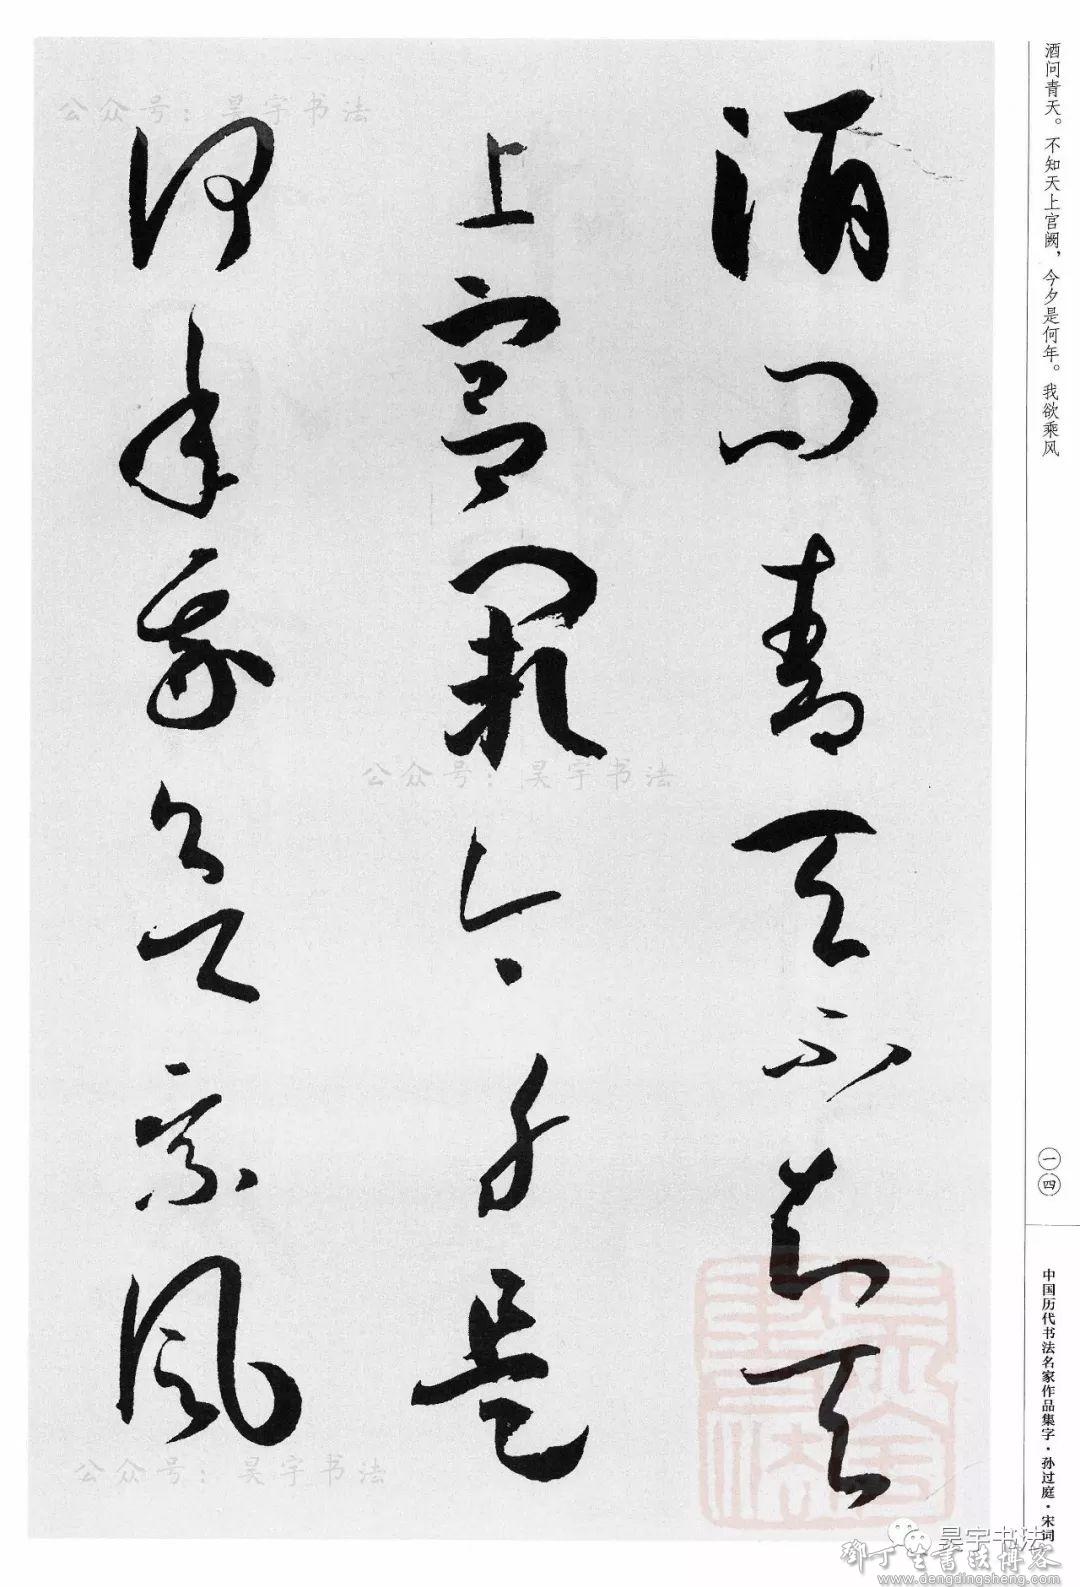 酒问青天不知天
上宫阙今夕是
何年我欲乘风
酒问青天。不知天上宫阙，今夕是何年。我欲乘风
一四
中国历代书法名家作品集字·孙过庭·宋词
公众号：昊宇书法
公众号：昊宇书法
公众号：昊宇书法
昊宇书法
昊宇书法
邓丁生书法博客
www.dengdingsheng.com